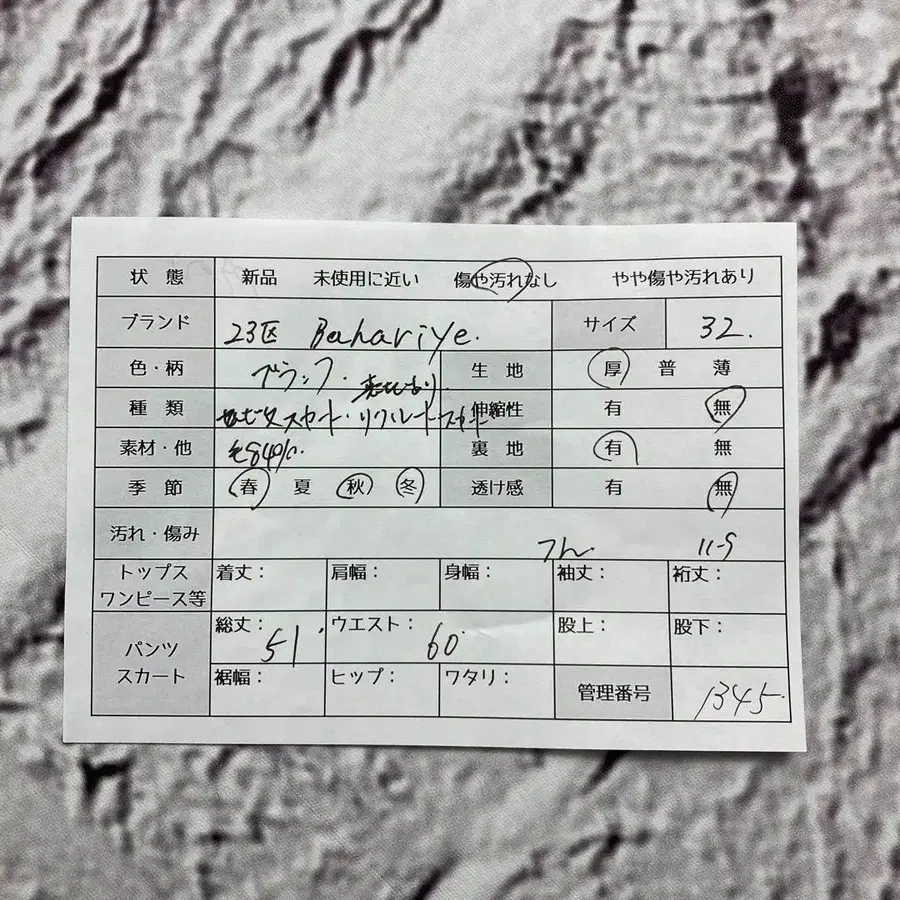 状態 新品 未使用に近い 傷や汚れなし やや傷や汚れあり
ブランド 23区 Bahariye. サイズ 32.
色・柄 ブラック. 生地 厚 普 薄
種類 スカート・リクルートスカート 伸縮性 有 無
素材・他 毛84%. 裏地 有 無
季節 春 夏 秋 冬 透け感 有 無
汚れ・傷み 11-9
トップス ワンピース等 着丈： 肩幅： 身幅： 袖丈： 裄丈：
パンツ スカート 総丈： 51. ウエスト： 60. 股上： 股下：
裾幅： ヒップ： ワタリ： 管理番号 1345.